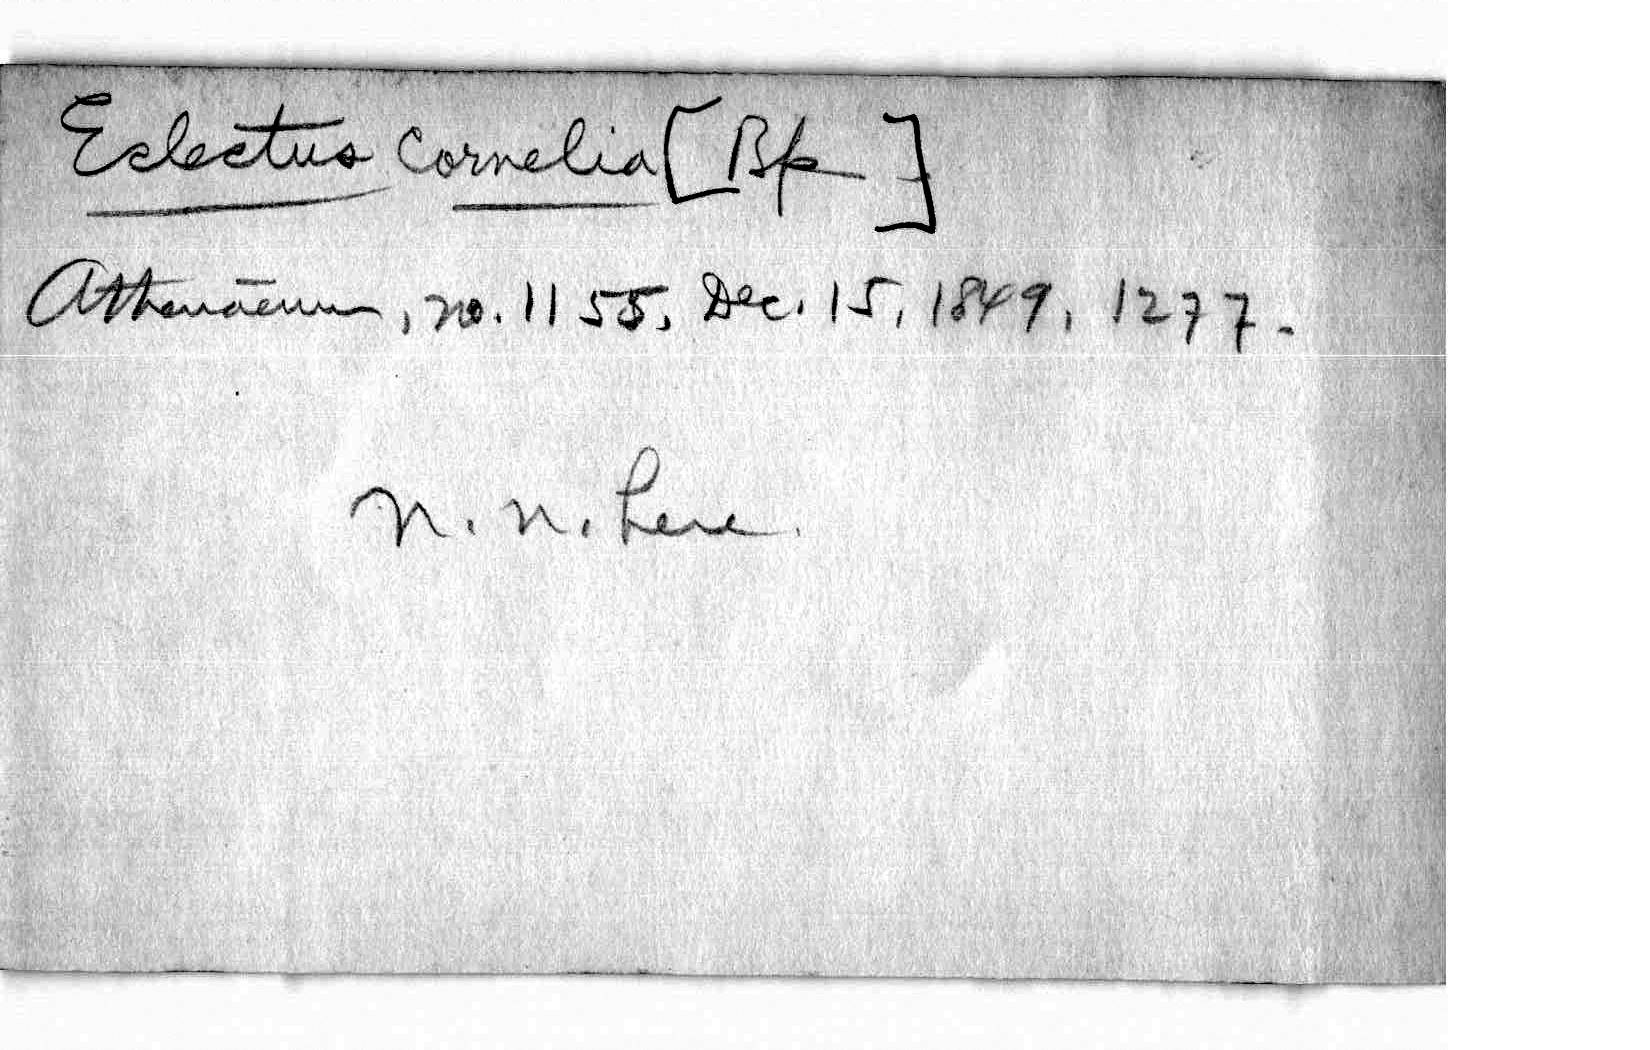 Eclectus cornelia [Bp]
Athenaeum, no. 1155, Dec. 15, 1849, 1277.
n. n. here.